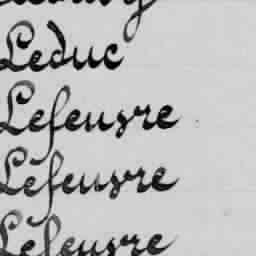 Leduc
Lefeuvre
Lefeuvre
Lefeuvre